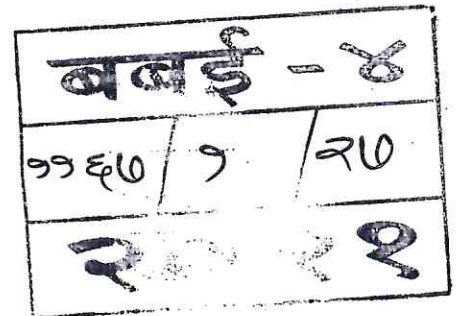 बबई - ४
११६७ / १ / २७
२०२१